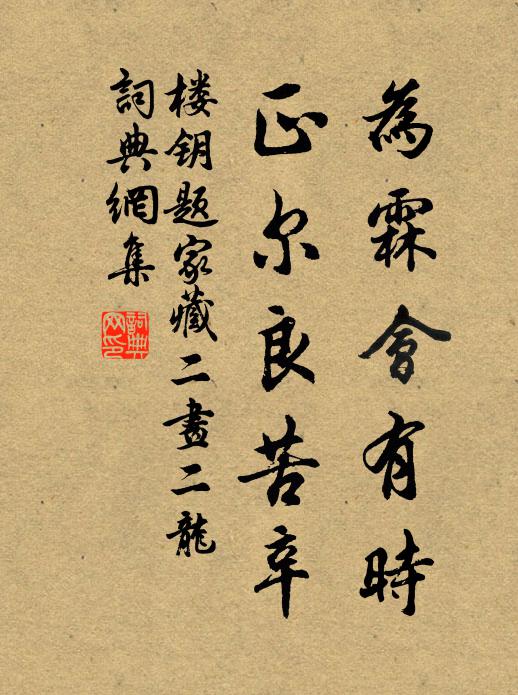 為霖會有時
正尔良苦辛
楼钥题家藏二畫二龍
詞典網集
詞典網印